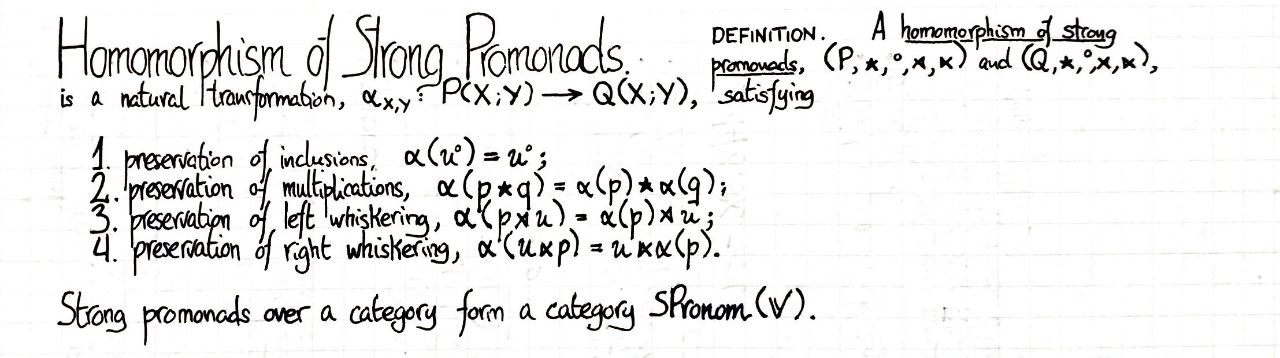 Homomorphism of Strong Promonads.
DEFINITION. A homomorphism of strong
promonads, (P,⋆,°,⋊,⋉) and (Q,⋆,°,⋊,⋉),
is a natural transformation, α_{X,Y}: P(X;Y) → Q(X;Y), satisfying
1. preservation of inclusions, α(u°) = u°;
2. preservation of multiplications, α(p⋆q) = α(p)⋆α(q);
3. preservation of left whiskering, α(p⋊u) = α(p)⋊u;
4. preservation of right whiskering, α(u⋉p) = u⋉α(p).
Strong promonads over a category form a category SPronom(V).